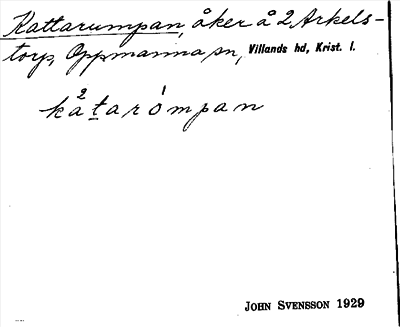 Kattarumpan, åker å 2 Arkels-
torp, Oppmanna sn, Villands hd, Krist. l.
kà²t̲arómpan
JOHN SVENSSON 1929